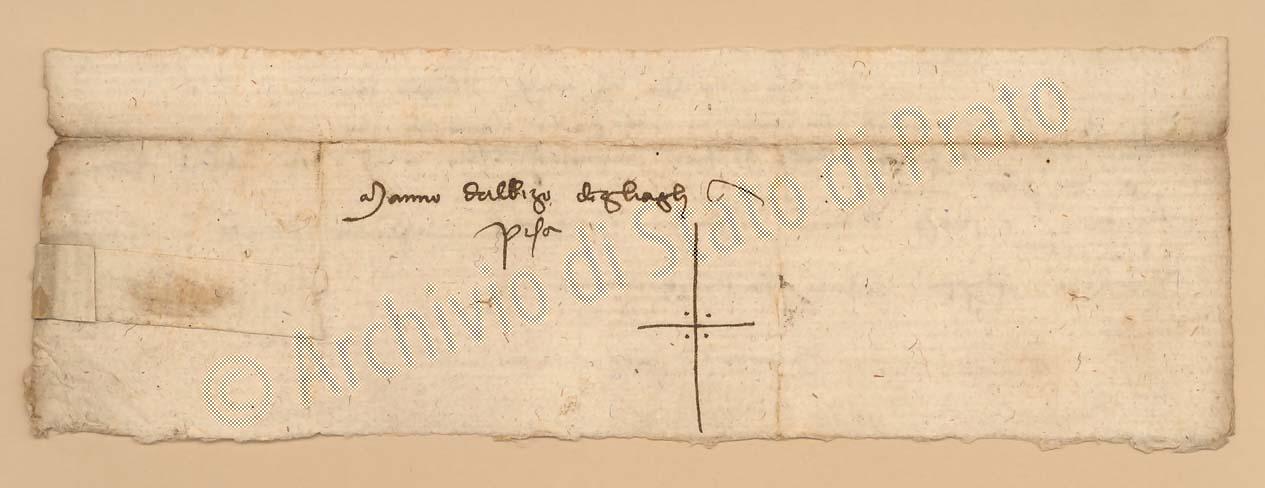 Manno dalbizo degliagli
pisa
© Archivio di Stato di Prato